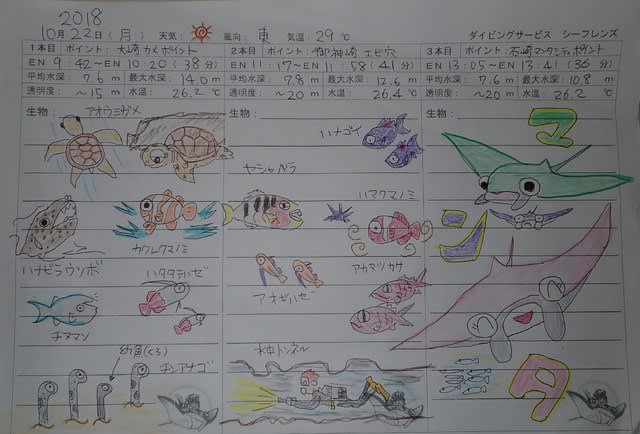 2018
10月22日(月) 天気: 風向: 東 気温: 29 ℃ ダイビングサービス シーフレンズ
1本目 ポイント: 大崎カメポイント
EN 9:42～EN 10:20(38分)
平均水深: 7.6 m 最大水深: 14.0 m
透明度: ～15 m 水温: 26.2 ℃
生物: アオウミガメ
カクレクマノミ
ハナビラウツボ
ハタタテハゼ
チヌマン
幼魚(くろ)
チンアナゴ
2本目 ポイント: 御神崎エビ穴
EN 11:17～EN 11:58(41分)
平均水深: 7.8 m 最大水深: 12.6 m
透明度: ～20 m 水温: 26.4 ℃
生物:
ハナゴイ
ヤシャベラ
ハマクマノミ
アカマツカサ
アオギハゼ
水中トンネル
3本目 ポイント: 石崎マンタシティポイント
EN 13:05～EN 13:41(36分)
平均水深: 7.6 m 最大水深: 10.8 m
透明度: ～20 m 水温: 26.2 ℃
生物:
マ
ン
タ